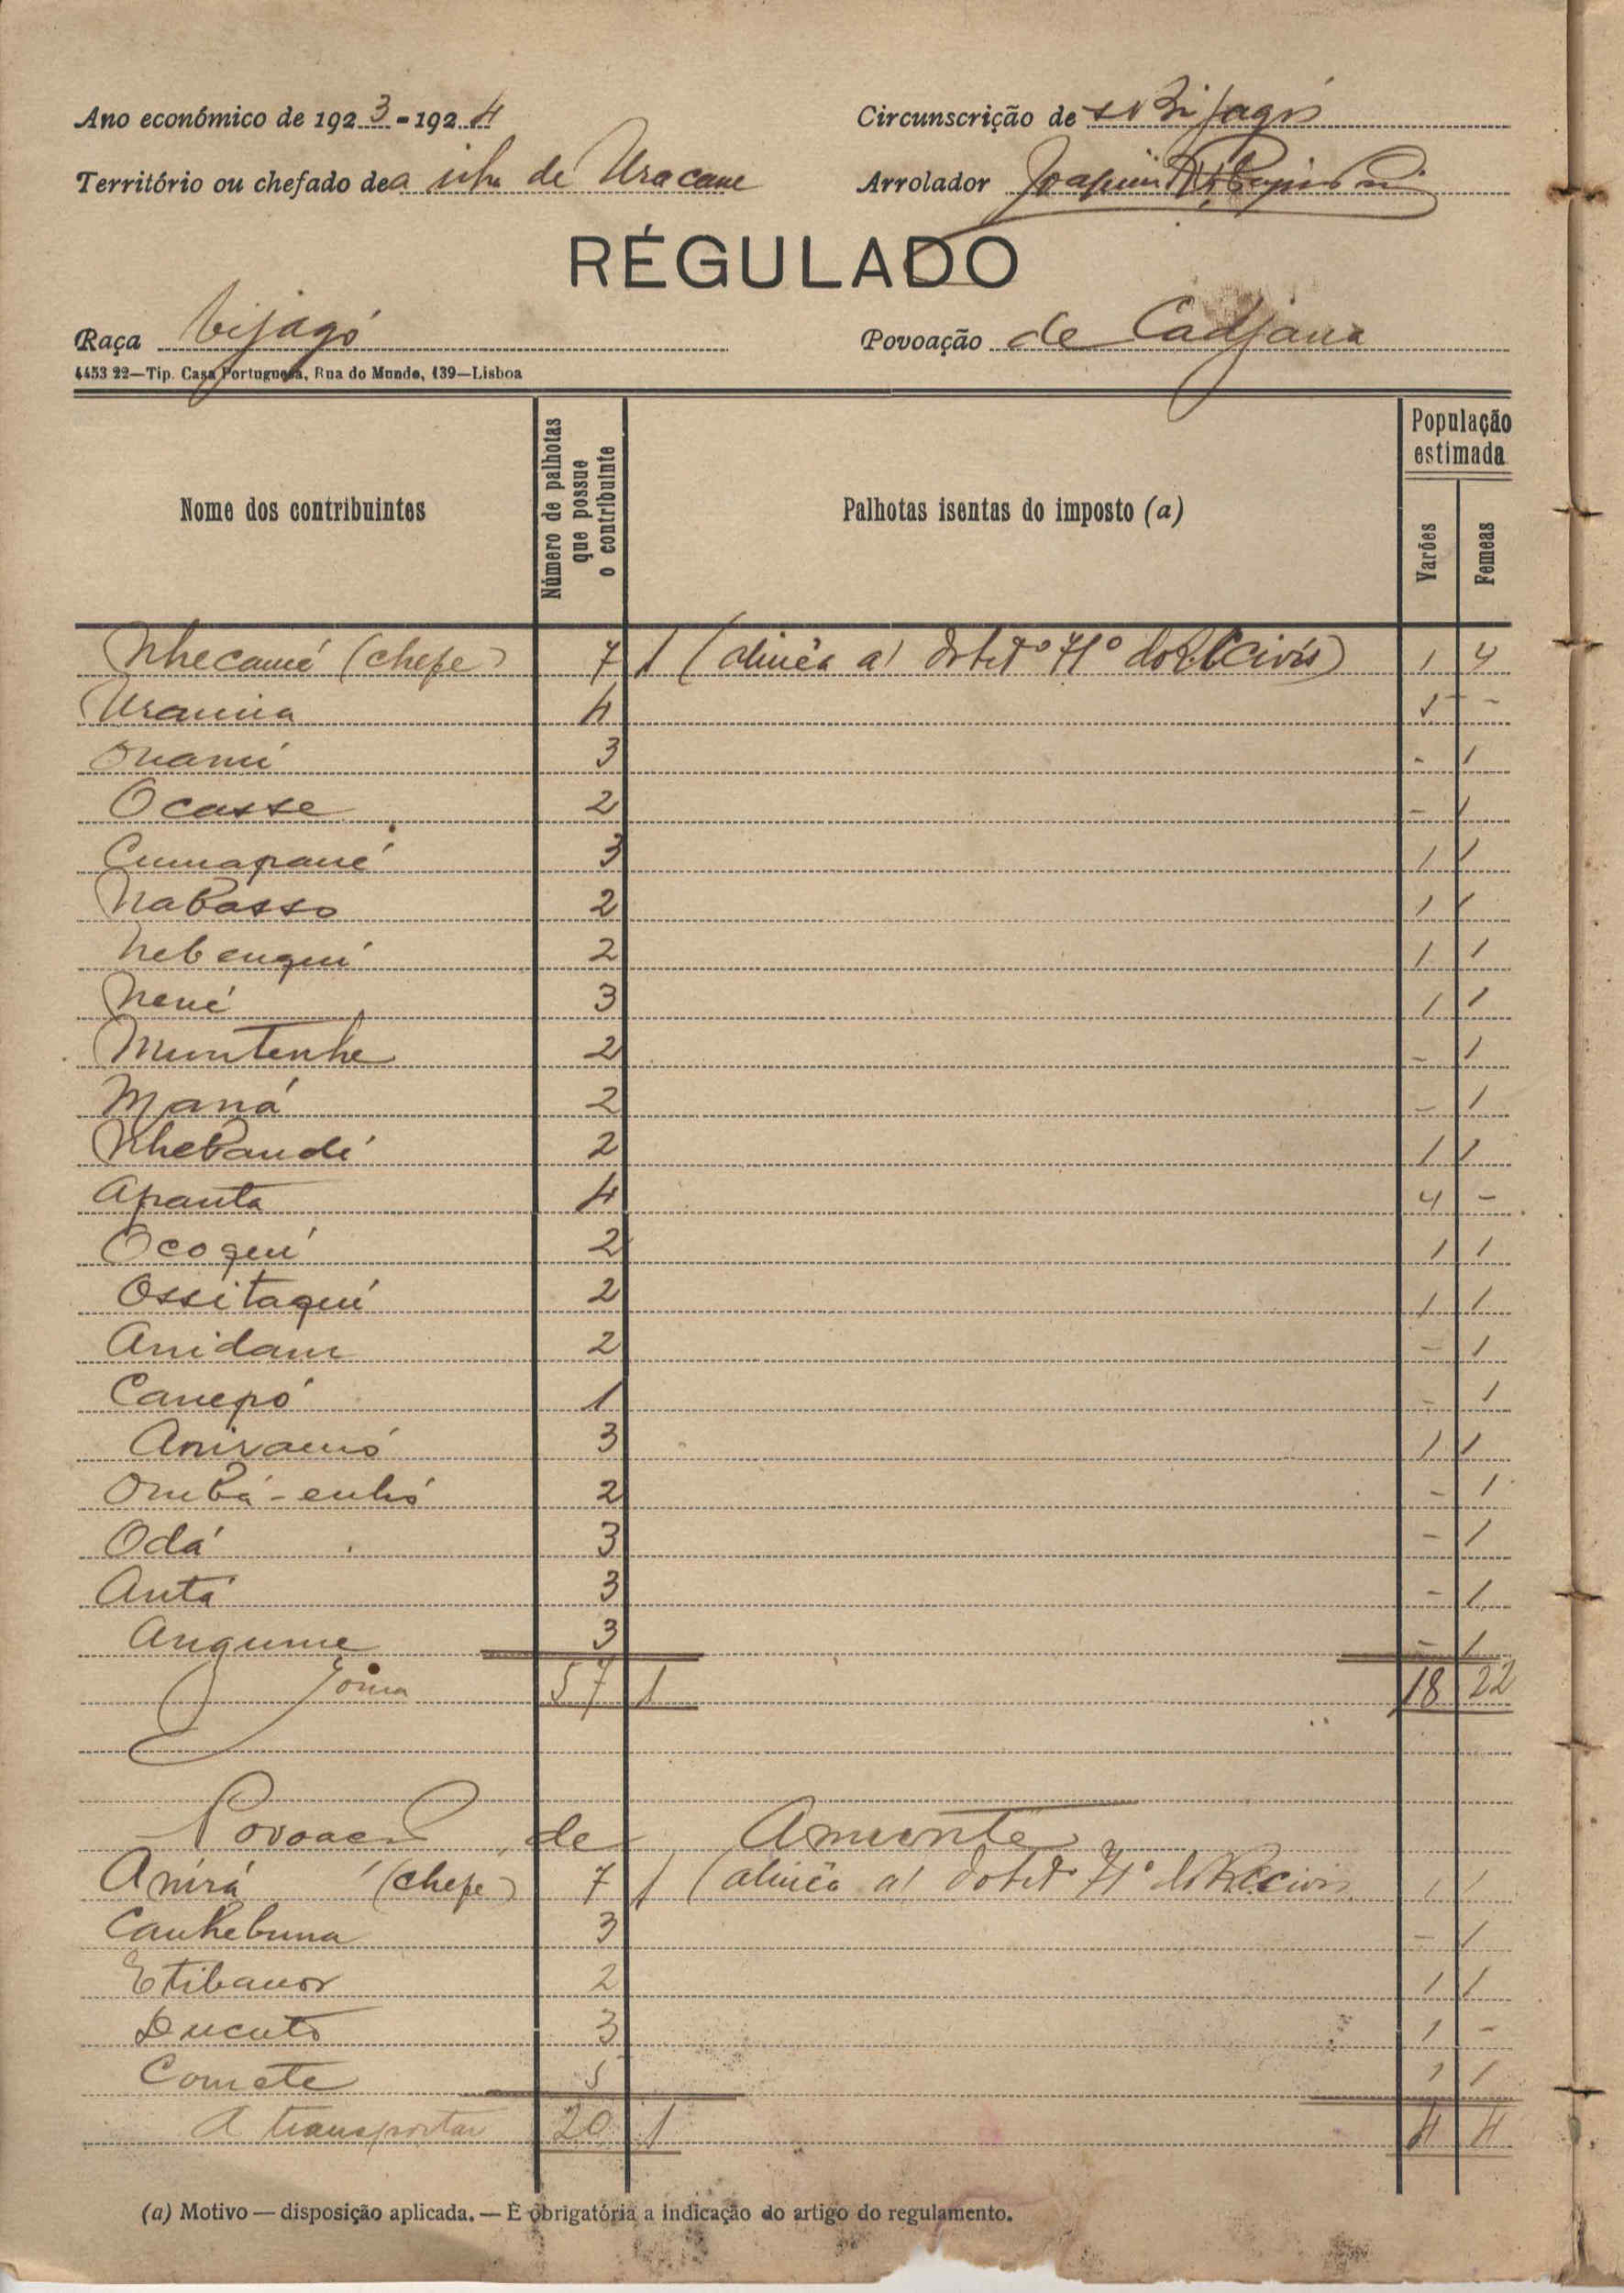 Ano económico de 1923-1924
Circunscrição de Bijagós
Território ou chefado dea ilha de Uracane
Arrolador Joaquim
RÉGULADO
Raça bijagó
Povoação de Cadjana
4453 22—Tip. Casa Portuguesa, Rua do Mundo, 139—Lisboa
Nome dos contribuintes
Número de palhotas que possue o contribuinte
Palhotas isentas do imposto (a)
População estimada
Varões
Femeas
Nhecamé (chefe) 7 1 (alinêa a) do 71º do Civis) 1 4
Urania 4 5 -
3 - 1
Ocasse 2 - 1
Cumapané 3 1 1
Nabasso 2 1 1
Nebenqui 2 1 1
Nené 3 1 1
Muntenhe 2 - 1
Maná 2 - 1
Nhebandé 2 1 1
Apanta 4 4 -
Ocoqui 2 1 1
Ossitaqui 2 1 1
Anidam 2 - 1
Canepó 1 - 1
Aniramó 3 1 1
2 - 1
Odá 3 - 1
Antá 3 - 1
Angume 3 - 1
Soma 57 1 18 22
Povoação de Amunte
Anirá (chefe) 7 1 (alinêa a) do 71º do civis 1 1
Canhebuna 3 - 1
Etibanor 2 1 1
Ducuto 3 1 -
Comete 5 1 1
A transportar 20 1 4 4
(a) Motivo — disposição aplicada. — É obrigatória a indicação do artigo do regulamento.